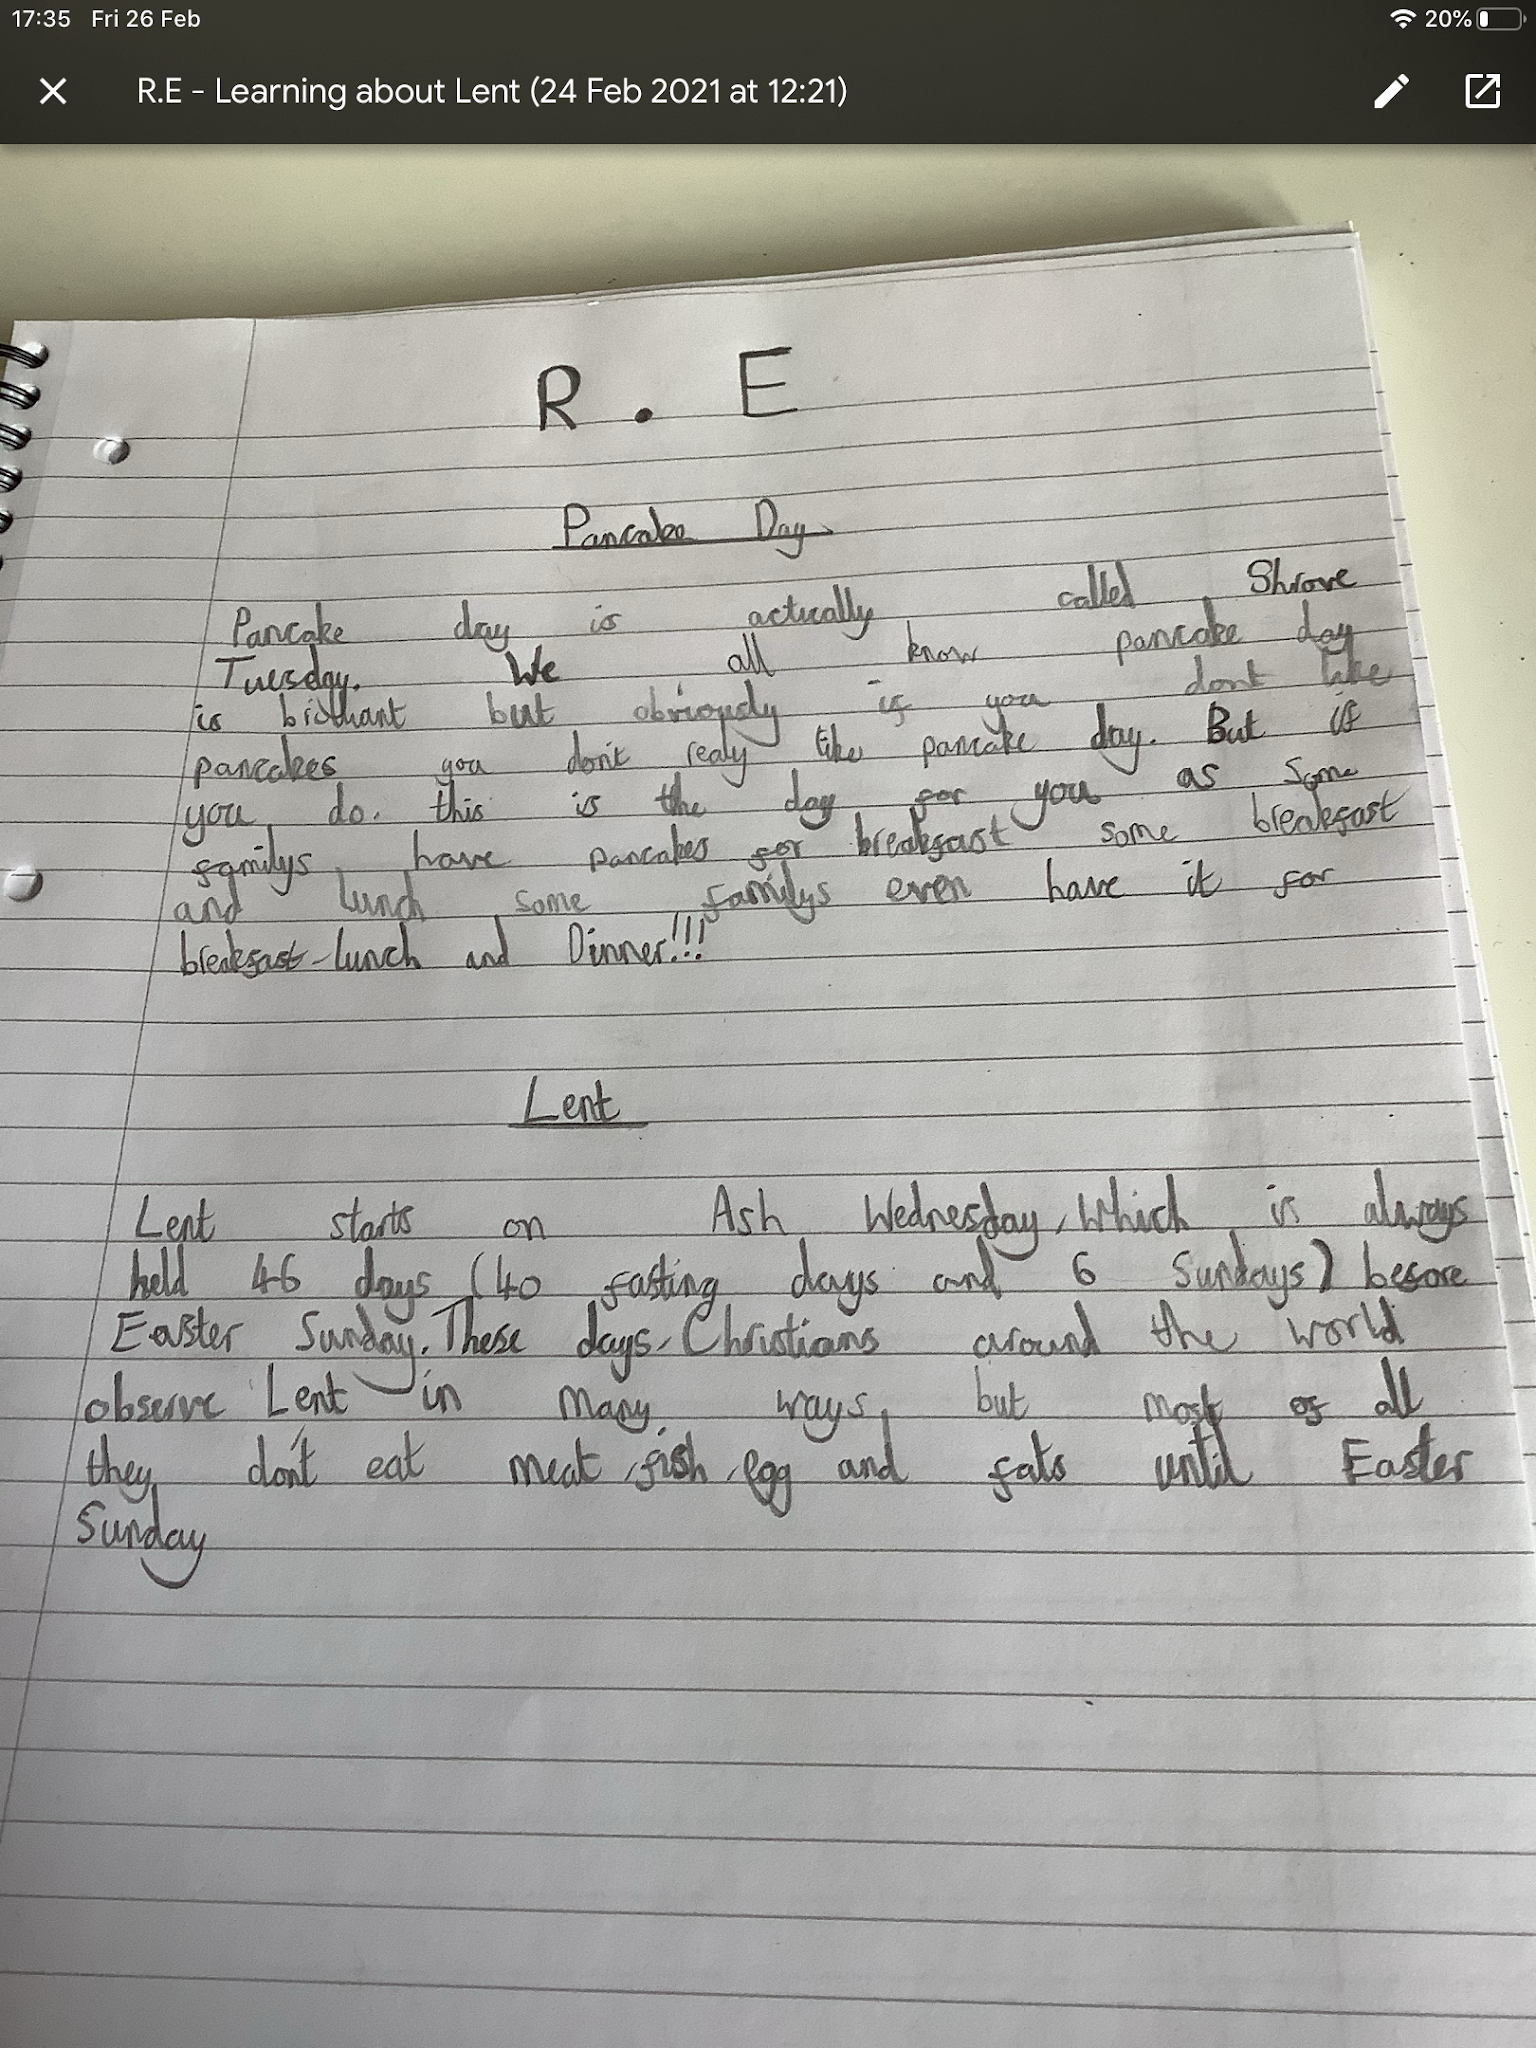 17:35 Fri 26 Feb 20%
R.E - Learning about Lent (24 Feb 2021 at 12:21)
R . E
Pancake Day
Pancake day is actually called Shrove
Tuesday. We all know pancake day
is brilliant but obviously if you dont like
pancakes you don't realy like pancake day. But if
you do. this is the day for you as some
familys have pancakes for breakfast some breakfast
and lunch some familys even have it for
breakfast-lunch and Dinner!!!
Lent
Lent starts on Ash Wednesday, Which is always
held 46 days (40 fasting days and 6 Sundays) before
Easter Sunday. These days, Christians around the world
observe Lent in many ways, but most of all
they don't eat meat, fish, egg and fats until Easter
Sunday